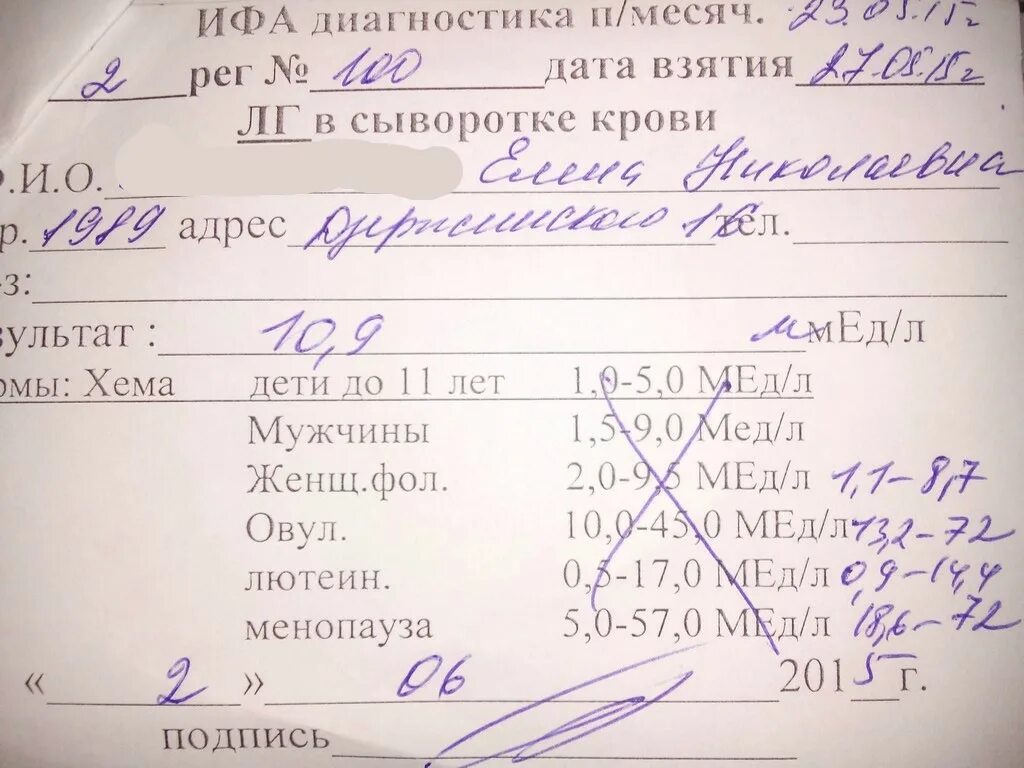 ИФА диагностика п/месяч. 23.05.15г
2 рег № 100 дата взятия 27.05.15г
ЛГ в сыворотке крови
Ф.И.О. Елена Николаевна
р. 1989 адрес Дзержинского 16 тел.
ез:
зультат : 10,9 м мЕд/л
рмы: Хема дети до 11 лет 1,0-5,0 МЕд/л
Мужчины 1,5-9,0 Мед/л
Женщ.фол. 2,0-9,5 МЕд/л 1,1-8,7
Овул. 10,0-45,0 МЕд/л 13,2-72
лютеин. 0,5-17,0 МЕд/л 0,9-14,4
менопауза 5,0-57,0 МЕд/л 18,6-72
« 2 » 06 2015 г.
подпись